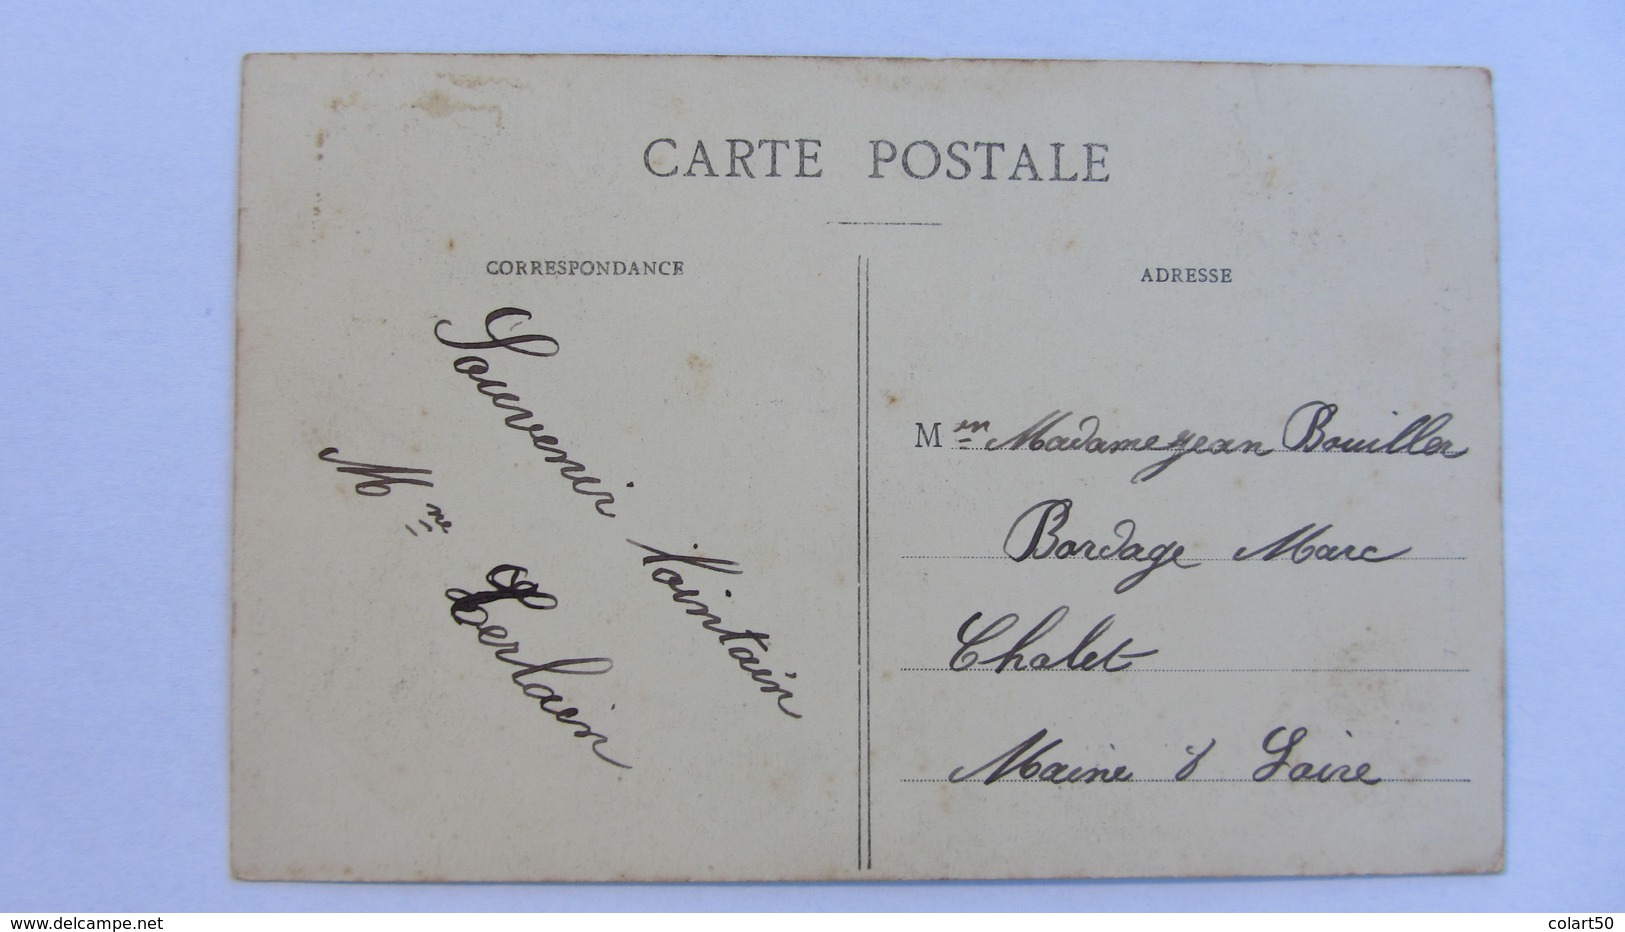 CARTE POSTALE
CORRESPONDANCE
Souvenir lointain
Mme Terlain
ADRESSE
Men Madame Jean Bouiller
Bordage Marc
Cholet
Maine & Loire
www.delcampe.net
colart50